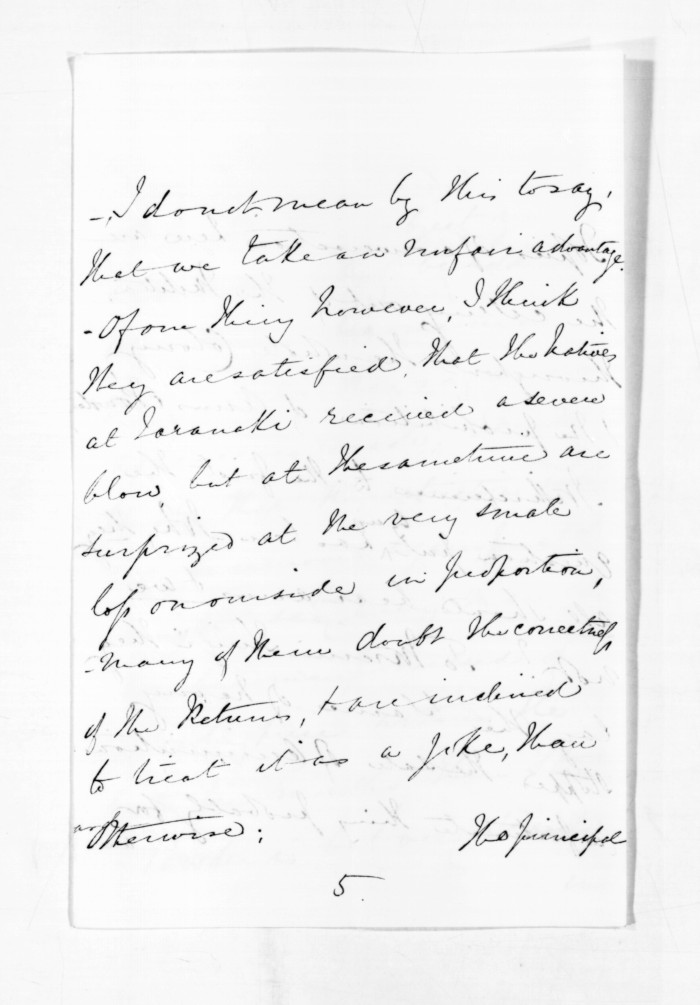 - I do not mean by this to say,
that we take an unfair advantage.
- Of one thing however, I think
they are satisfied, that the Natives
at Taranaki received a severe
blow, but at the same time are
surprized at the very small
loss on our side in proportion,
- many of them doubt the correctness
of the Returns, & are inclined
to treat it as a joke, than
otherwise; The principal
5.